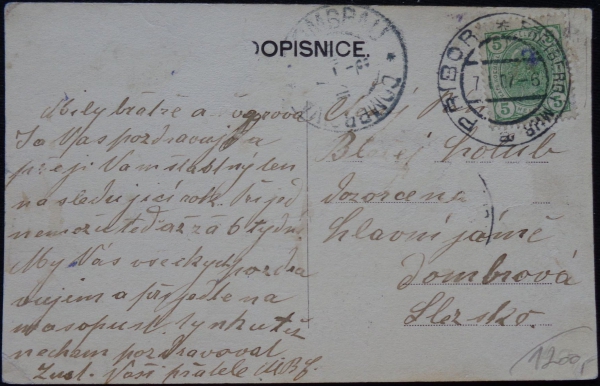 DOPISNICE.
DOMBRAU
DOMBROVÁ
PŘÍBOR
FREIBERG
5
5
Milý bratře a švagrová
Já Vas pozdravuji a
přeji Vam šťastný ten
nasledující rok. Přijed
nemožu teď až za 6 tydnů
My Vás všeckych pozdra
vujem a přijeďte na
masopust. tynku též
necham pozdravovat
Vaši přatele
Holub
dozorce na
hlavní jámě
Dombrová
Slezsko.
1200,-